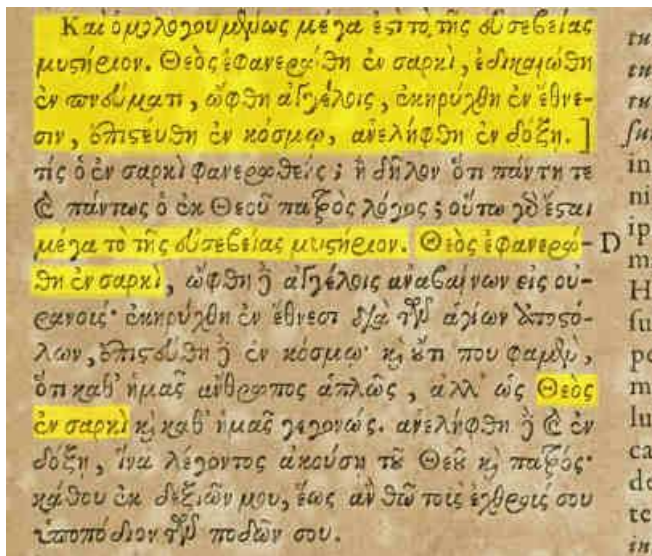 Καὶ ὁμολογουμένως μέγα ἐστὶ τὸ τῆς εὐσεβείας
μυστήριον. Θεὸς ἐφανερώθη ἐν σαρκὶ, ἐδικαιώθη
ἐν πνεύματι, ὤφθη ἀγγέλοις, ἐκηρύχθη ἐν ἔθνε-
σιν, ἐπιστεύθη ἐν κόσμῳ, ἀνελήφθη ἐν δόξῃ.]
τίς ὁ ἐν σαρκὶ φανερωθείς; ἢ δῆλον ὅτι πάντη τε
καὶ πάντως ὁ ἐκ Θεοῦ πατρὸς λόγος; οὕτω γὰρ ἔσται
μέγα τὸ τῆς εὐσεβείας μυστήριον. Θεὸς ἐφανερώ- D
θη ἐν σαρκὶ, ὤφθη δὲ ἀγγέλοις ἀναβαίνων εἰς οὐ-
ρανούς· ἐκηρύχθη ἐν ἔθνεσι διὰ τῶν ἁγίων ἀποστό-
λων, ἐπιστεύθη δὲ ἐν κόσμῳ· καὶ οὔτι που φαμὲν,
ὅτι καθ' ἡμᾶς ἄνθρωπος ἁπλῶς, ἀλλ' ὡς Θεὸς
ἐν σαρκὶ καὶ καθ' ἡμᾶς γεγονώς. ἀνελήφθη δὲ καὶ ἐν
δόξῃ, ἵνα λέγοντος ἀκούσῃ τοῦ Θεοῦ καὶ πατρός·
κάθου ἐκ δεξιῶν μου, ἕως ἂν θῶ τοὺς ἐχθρούς σου
ὑποπόδιον τῶν ποδῶν σου.